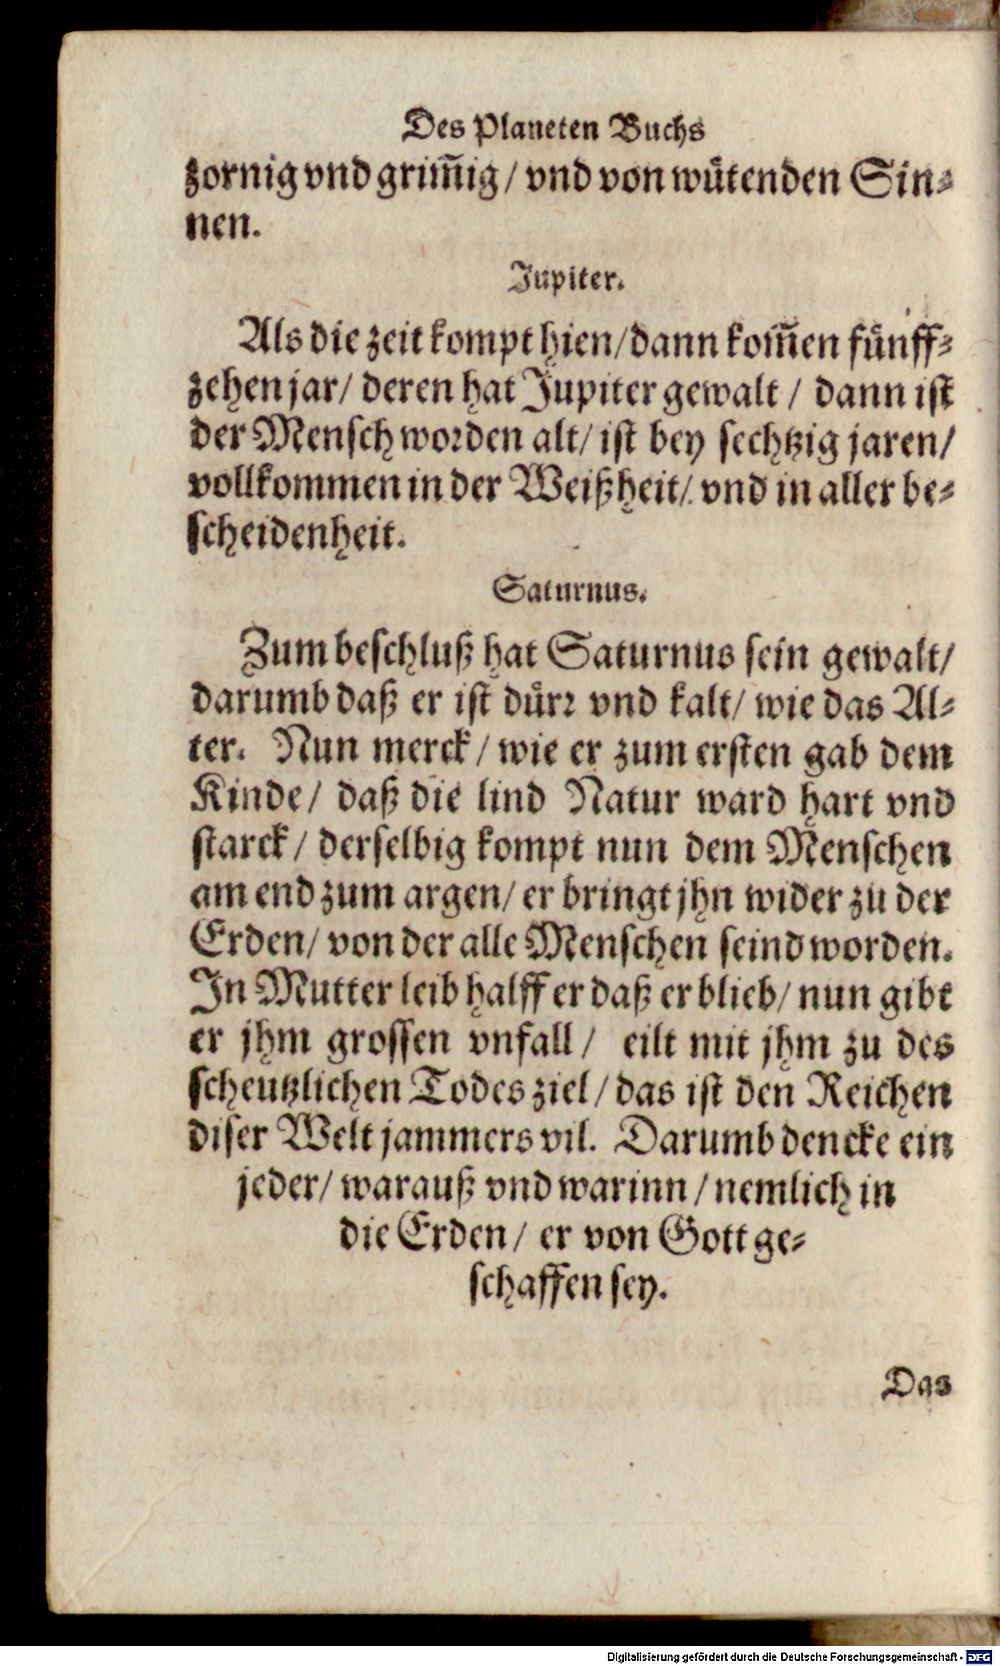 Des Planeten Buchs
zornig vnd grim̃ig / vnd von wuͤtenden Sin⸗
nen.
Jupiter.
Als die zeit kompt hien / dann kom̃en fuͤnff⸗
zehen jar / deren hat Jupiter gewalt / dann ist
der Mensch worden alt / ist bey sechtzig jaren /
vollkommen in der Weißheit / vnd in aller be⸗
scheidenheit.
Saturnus.
Zum beschluß hat Saturnus sein gewalt /
darumb daß er ist duͤrr vnd kalt / wie das Al⸗
ter. Nun merck / wie er zum ersten gab dem
Kinde / daß die lind Natur ward hart vnd
starck / derselbig kompt nun dem Menschen
am end zum argen / er bringt jhn wider zu der
Erden / von der alle Menschen seind worden.
In Mutter leib halff er daß er blieb / nun gibt
er jhm grossen vnfall / eilt mit jhm zu des
scheutzlichen Todes ziel / das ist den Reichen
diser Welt jammers vil. Darumb dencke ein
jeder / warauß vnd warinn / nemlich in
die Erden / er von Gott ge⸗
schaffen sey.
Das
Digitalisierung gefördert durch die Deutsche Forschungsgemeinschaft - DFG